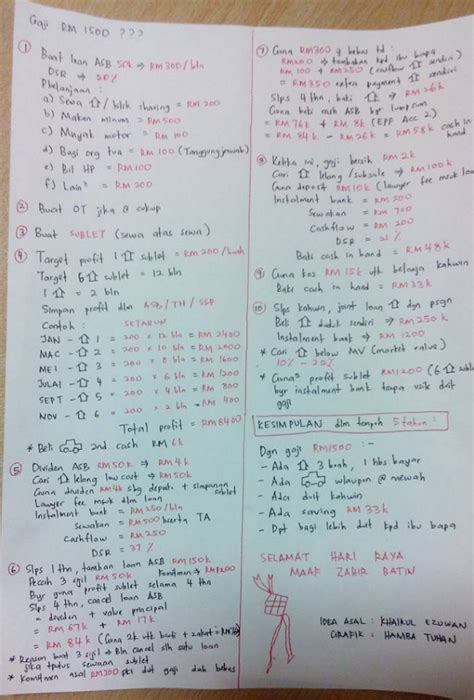 Gaji RM 1500 ???
① Buat loan ASB 50k → RM300/bln
DSR → 20%
Perbelanjaan :
a) Sewa / bilik sharing = RM 200
b) Makan minum = RM500
c) Minyak motor = RM 100
d) Bagi org tua = RM 100 (Tanggungjawab)
e) Bil HP = RM100
f) Lain² = RM 200
② Buat OT jika x cukup
③ Buat SUBLET (sewa atas sewa)
④ Target profit 1 sublet = RM 200/buah
Target 6 sublet = 12 bln
1 = 2 bln
Simpan profit dlm ASB/TH/SSP
Contoh : SETAHUN
JAN - 1 = 200 x 12 bln = RM 2400
MAC - 2 = 200 x 10 bln = RM 2000
MEI - 3 = 200 x 8 bln = RM 1600
JULAI - 4 = 200 x 6 bln = RM 1200
SEPT - 5 = 200 x 4 bln = RM 800
NOV - 6 = 200 x 2 bln = RM 400
Total profit = RM 8400
* Beli 2nd cash RM 6k
⑤ Dividen ASB RM50k → RM 4k
Cari lelong low cost → RM 50k
Guna dividen RM4k sbg deposit + simpanan sublet
Lawyer fee msuk dlm loan
Instalment bank = RM 250/bln
Sewakan = RM 500 beserta TA
Cashflow = RM 250
DSR = 37 %
⑥ Slps 1 thn, tambah loan ASB RM150k
Pecah 3 sijil RM 50k Komitmen → RM900
Byr guna profit sublet selama 4 thn
Slps 4 thn, cancel loan ASB
= dividen + value principal
= RM 67k + RM 17k
= RM 84k (Guna 2k utk bonti + zakat =
* Reason buat 3 sijil → Bln cancel slh satu loan
jika tputus sewaan sublet
* Komitmen asal RM300 pki dut gaji dah bebas
⑦ Guna RM300 yg bebas td :
RM200 → tambahan kpd ibu bapa
RM 100 + RM250 (cashflow sendiri)
= RM350 extra payment sendiri
Slps 4 thn, baki → RM 26k
Guna baki cash ASB byr lump sum
= RM 76k + RM 8k (EPF Acc 2)
= RM 84k - RM 26k = RM 58k cash in hand
⑧ Ketika ini, gaji bersih RM 2k
Cari lelong /subsale → RM 100k
Guna deposit RM10k (lawyer fee msuk loan
Instalment bank = RM 500
Sewakan = RM 700
Cashflow = RM 200
DSR = 25 %
Baki cash in hand = RM 48k
⑨ Guna kos RM 15k utk belanja kahwin
Baki cash in hand = RM 33k
⑩ Slps kahwin, joint loan dgn psgn
Beli duduk sendiri → RM 250k
Instalment bank → RM 1200
* Cari below MV (market value)
10% - 20%
* Guna² profit sublet RM1200 (6 sublet)
byr instalment bank tanpa usik dut
gaji
KESIMPULAN dlm tempoh 5 tahun :
Dgn gaji RM1500 :-
- Ada 3 buah, 1 hbs bayar
- Ada walaupun x mewah
- Ada duit kahwin
- Ada saving RM 33k
- Dpt bagi lebih dut kpd ibu bapa
SELAMAT HARI RAYA
MAAF ZAHIR BATIN
IDEA ASAL : KHAIRUL EZUWAN
GRAFIK : HAMBA TUHAN